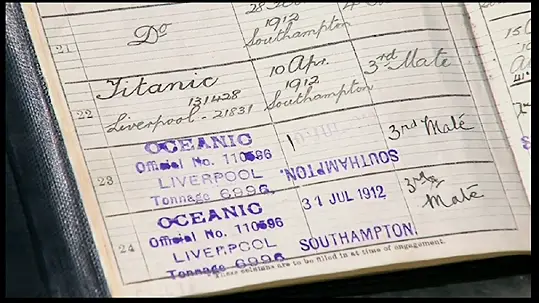 28
1912
21 Do Southampton
Titanic 10 Apr. 3rd Mate
131428 1912
22 Liverpool - 21831 Southampton
OCEANIC 1
23 Official No. 110596 3rd Mate
LIVERPOOL SOUTHAMPTON.
Tonnage 6996.
OCEANIC 31 JUL 1912 3rd
Official No. 110596 Mate
24 LIVERPOOL SOUTHAMPTON.
Tonnage 6996.
These columns are to be filled in at time of engagement.